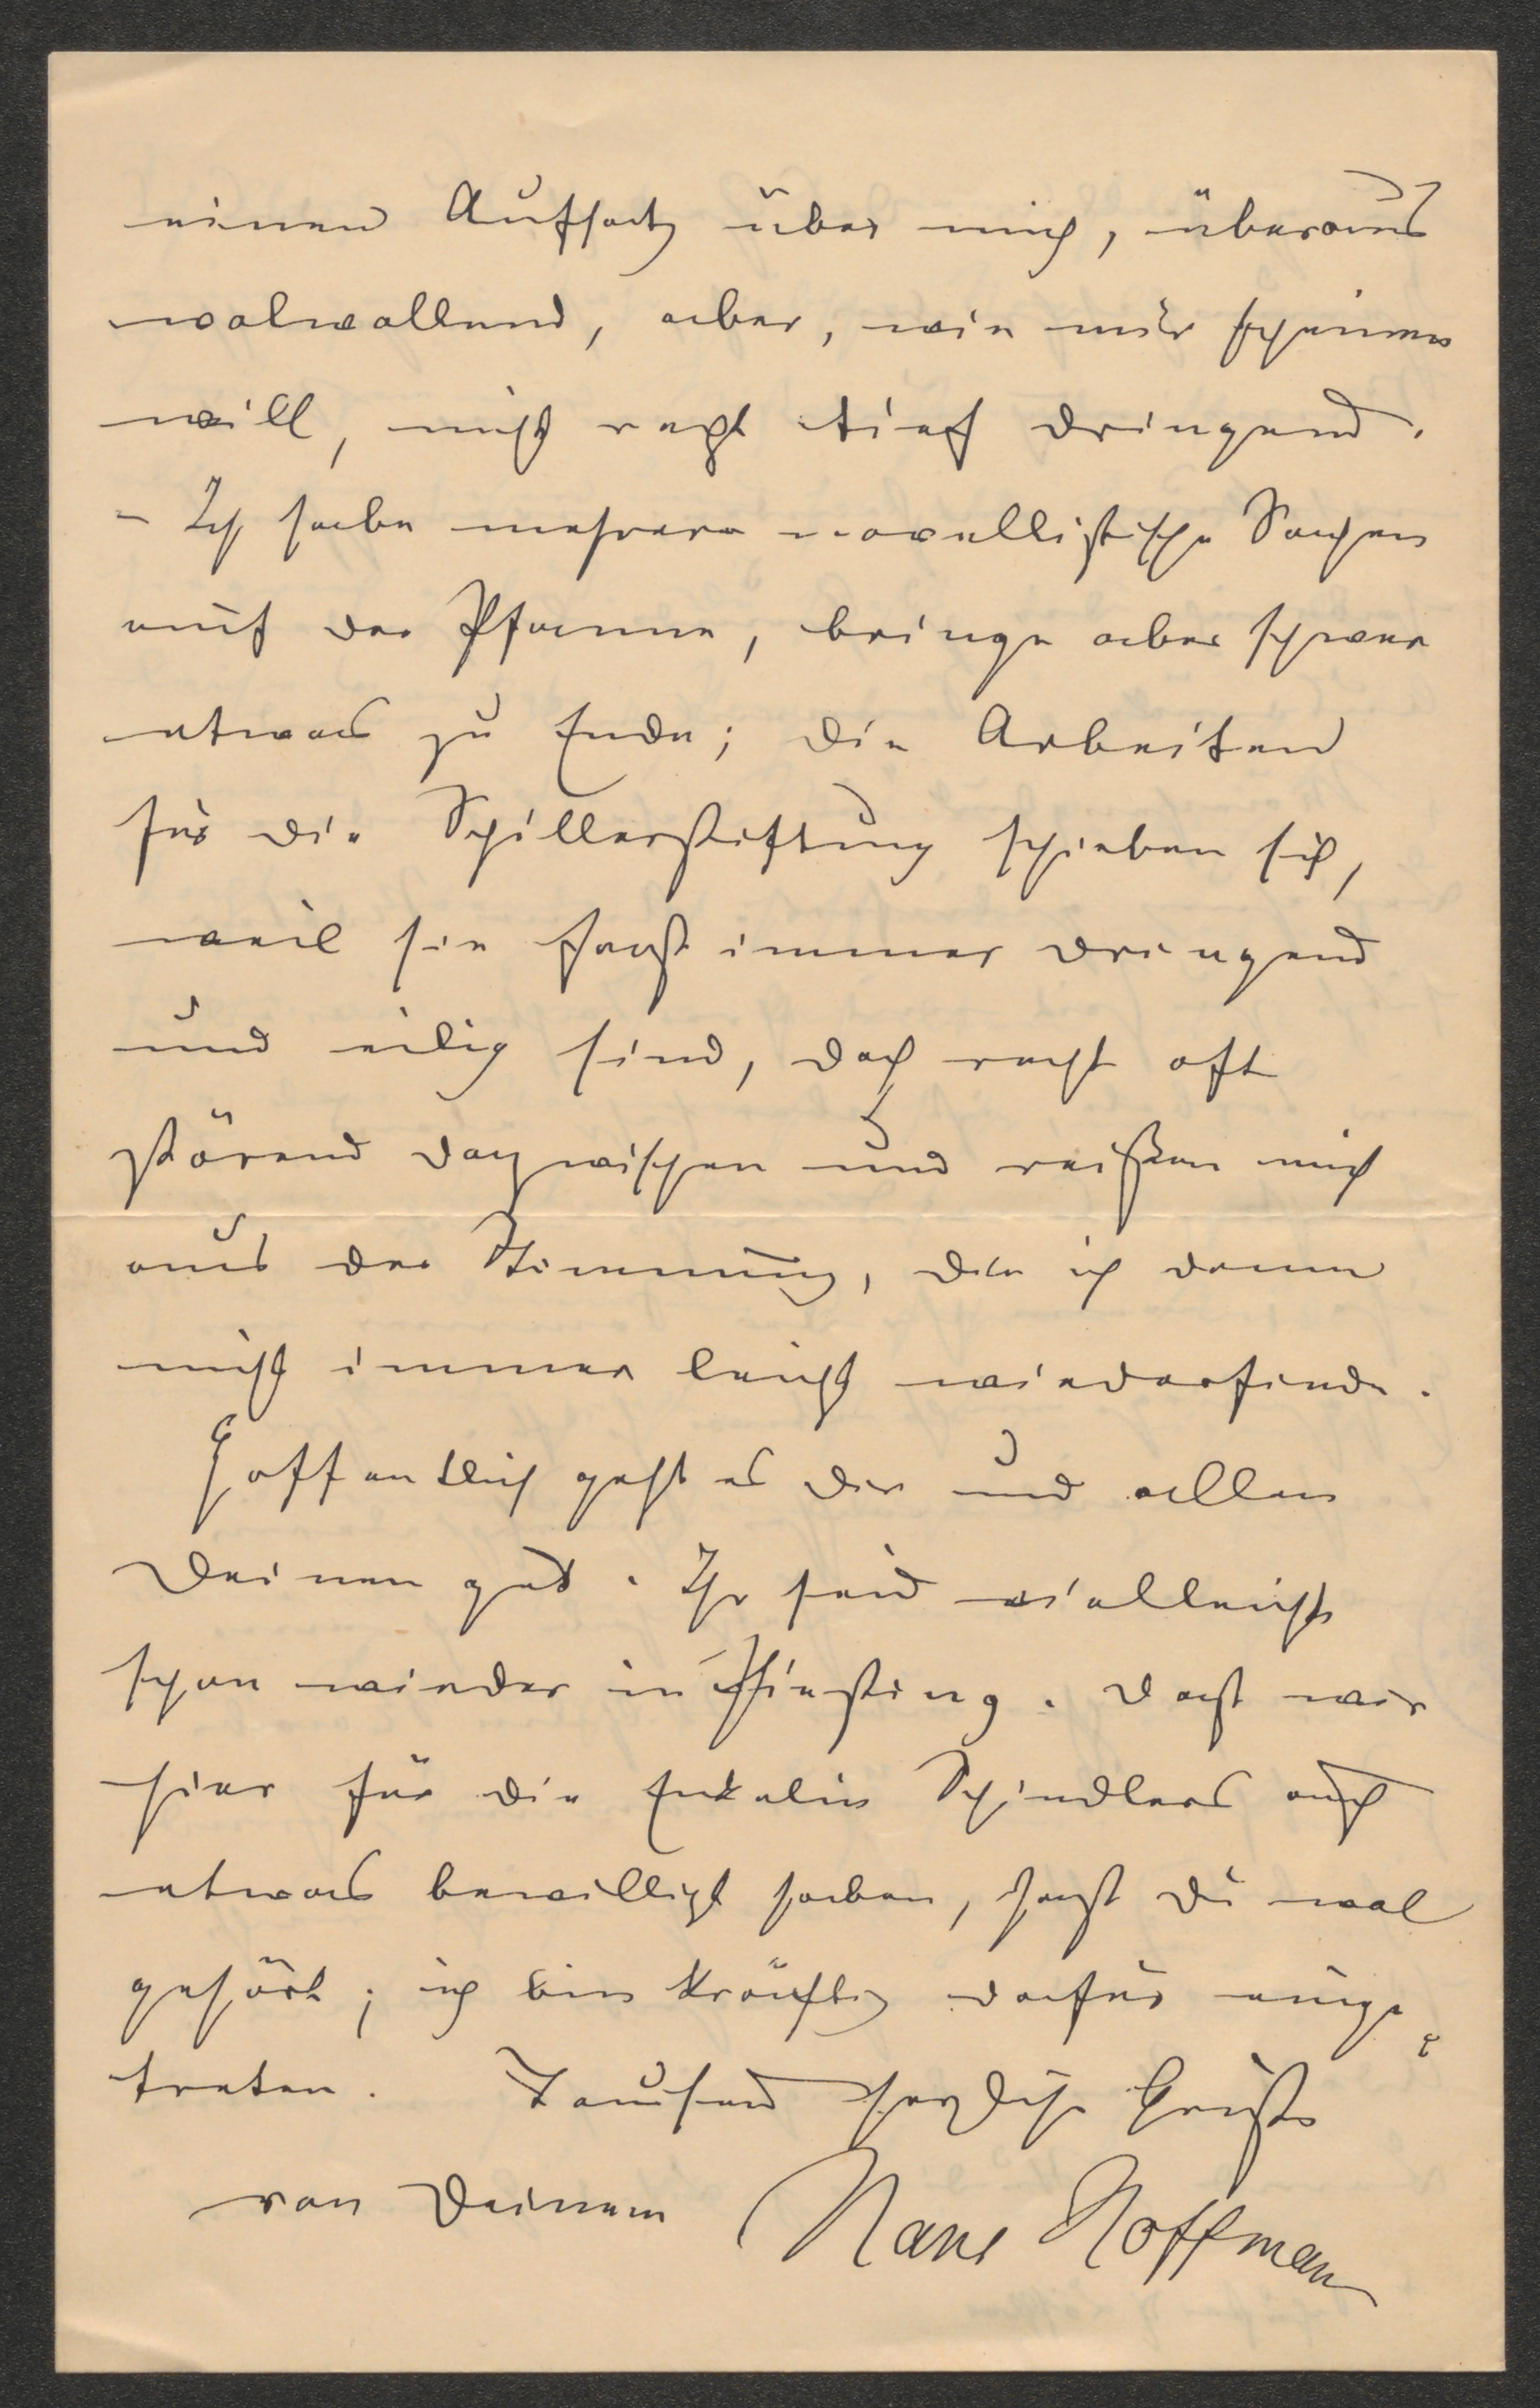 einen Aufsatz über mich, überaus
wolwollend, aber, wie mir scheinen
will, nicht recht tief dringend.
– Ich habe mehrere novellistische Sachen
auf der Pfanne, bringe aber schwer
etwas zu Ende; die Arbeiten
für die Schillerstiftung schieben sich,
weil sie fast immer dringend
und eilig sind, doch recht oft
störend dazwischen und reißen mich
aus der Stimmung, die ich dann
nicht immer leicht wiederfinde.
Hoffentlich geht es Dir und allen
Deinen gut. Ihr seid vielleicht
schon wieder in Piesting. Daß wir
hier für die Enkelin Schindlers auch
etwas bewilligt haben, hast Du wol
gehört; ich bin kräftig dafür einge-
treten. Tausend herzliche Grüße
von Deinem Hans Hoffmann